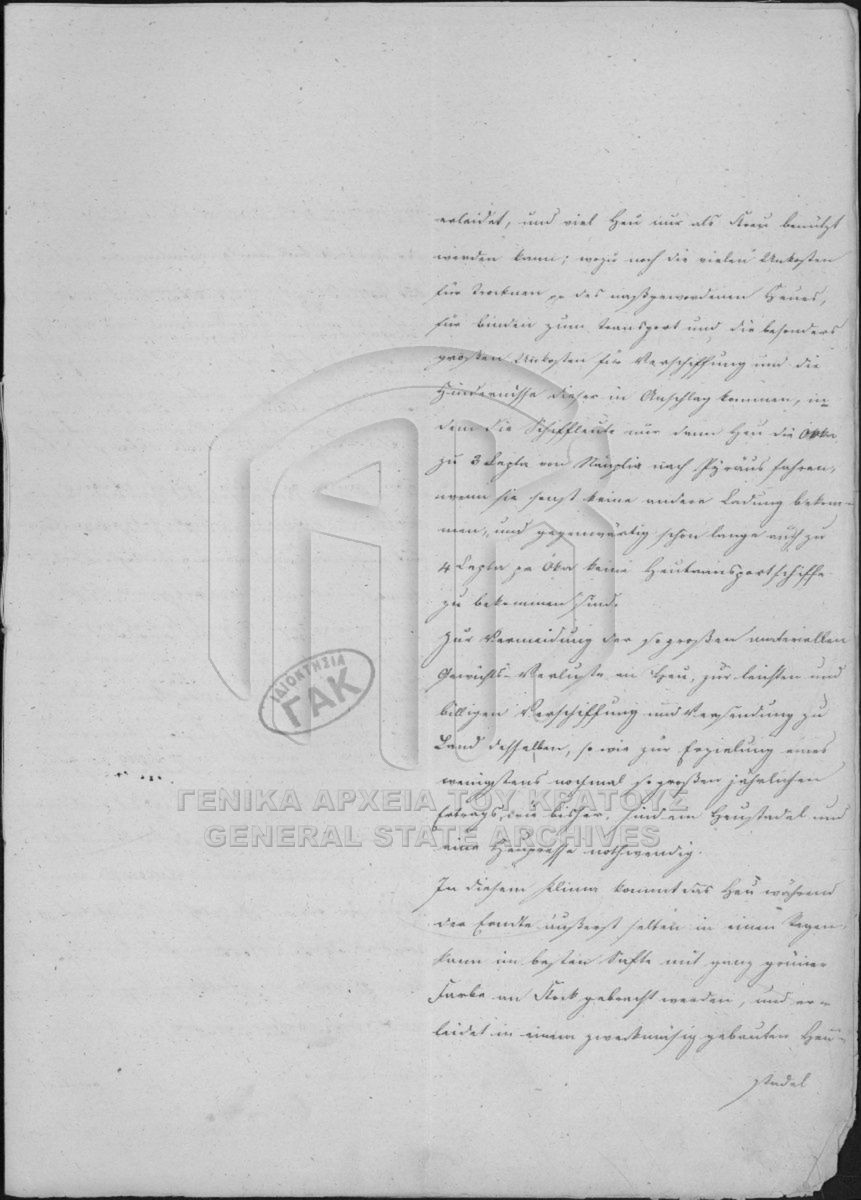 erleidet, und viel Heu nur als Streu benützt
werden kann; wozu noch die vielen Unkosten
für Trocknen pp des naßgewordenen Heues,
für binden zum transport und die besonders
großen Unkosten für Verschiffung und die
Hindernisse dieser in Anschlag kommen, in-
dem die Schiffleute nur dann Heu die Okka
zu 3 Lepta von Nauplia nach Pyräus fahren,
wenn sie sonst keine andere Ladung bekom-
men, und gegenwärtig schon lange auch zu
4 Lepta pr Oka keine Heutransportschiffe
zu bekommen sind.
Zur Vermeidung der so großen materiellen
Gewichts-Verluste an Heu, zur leichten und
billigen Verschiffung und Versendung zu
Land desselben, so wie zur Erzielung eines
wenigstens nochmal so großen jährlichen
Ertrags, wie bisher, sind ein Heustadel und
eine Heupresse nothwendig.
In diesem Klima kommt das Heu während
der Erndte äußerst selten in einen Regen,
kann im besten Safte mit ganz grüner
Farbe an Stock gebracht werden, und er-
leidet in einem zweckmäsig gebauten Heu-
stadel
ΙΔΙΟΚΤΗΣΙΑ
ΓΑΚ
ΓΕΝΙΚΑ ΑΡΧΕΙΑ ΤΟΥ ΚΡΑΤΟΥΣ
GENERAL STATE ARCHIVES